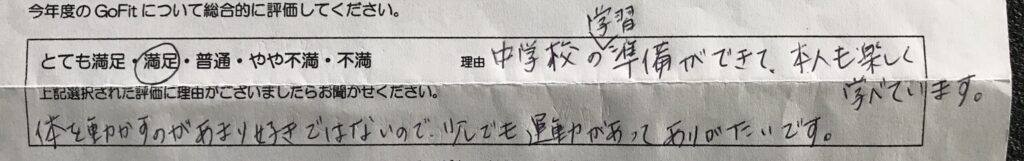 今年度のGoFitについて総合的に評価してください。
とても満足・満足・普通・やや不満・不満
理由 中学校の学習準備ができて、本人も楽しく
学べています。
上記選択された評価に理由がございましたらお聞かせください。
体を動かすのがあまり好きではないので、少しでも運動があってありがたいです。